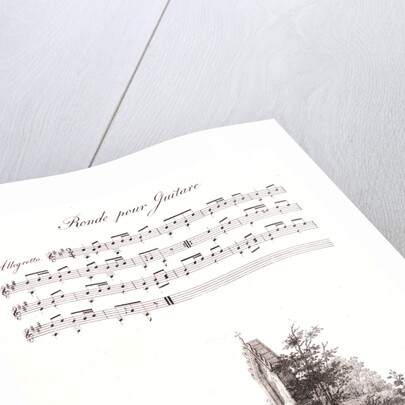 Ronde pour Guitare
Allegretto.